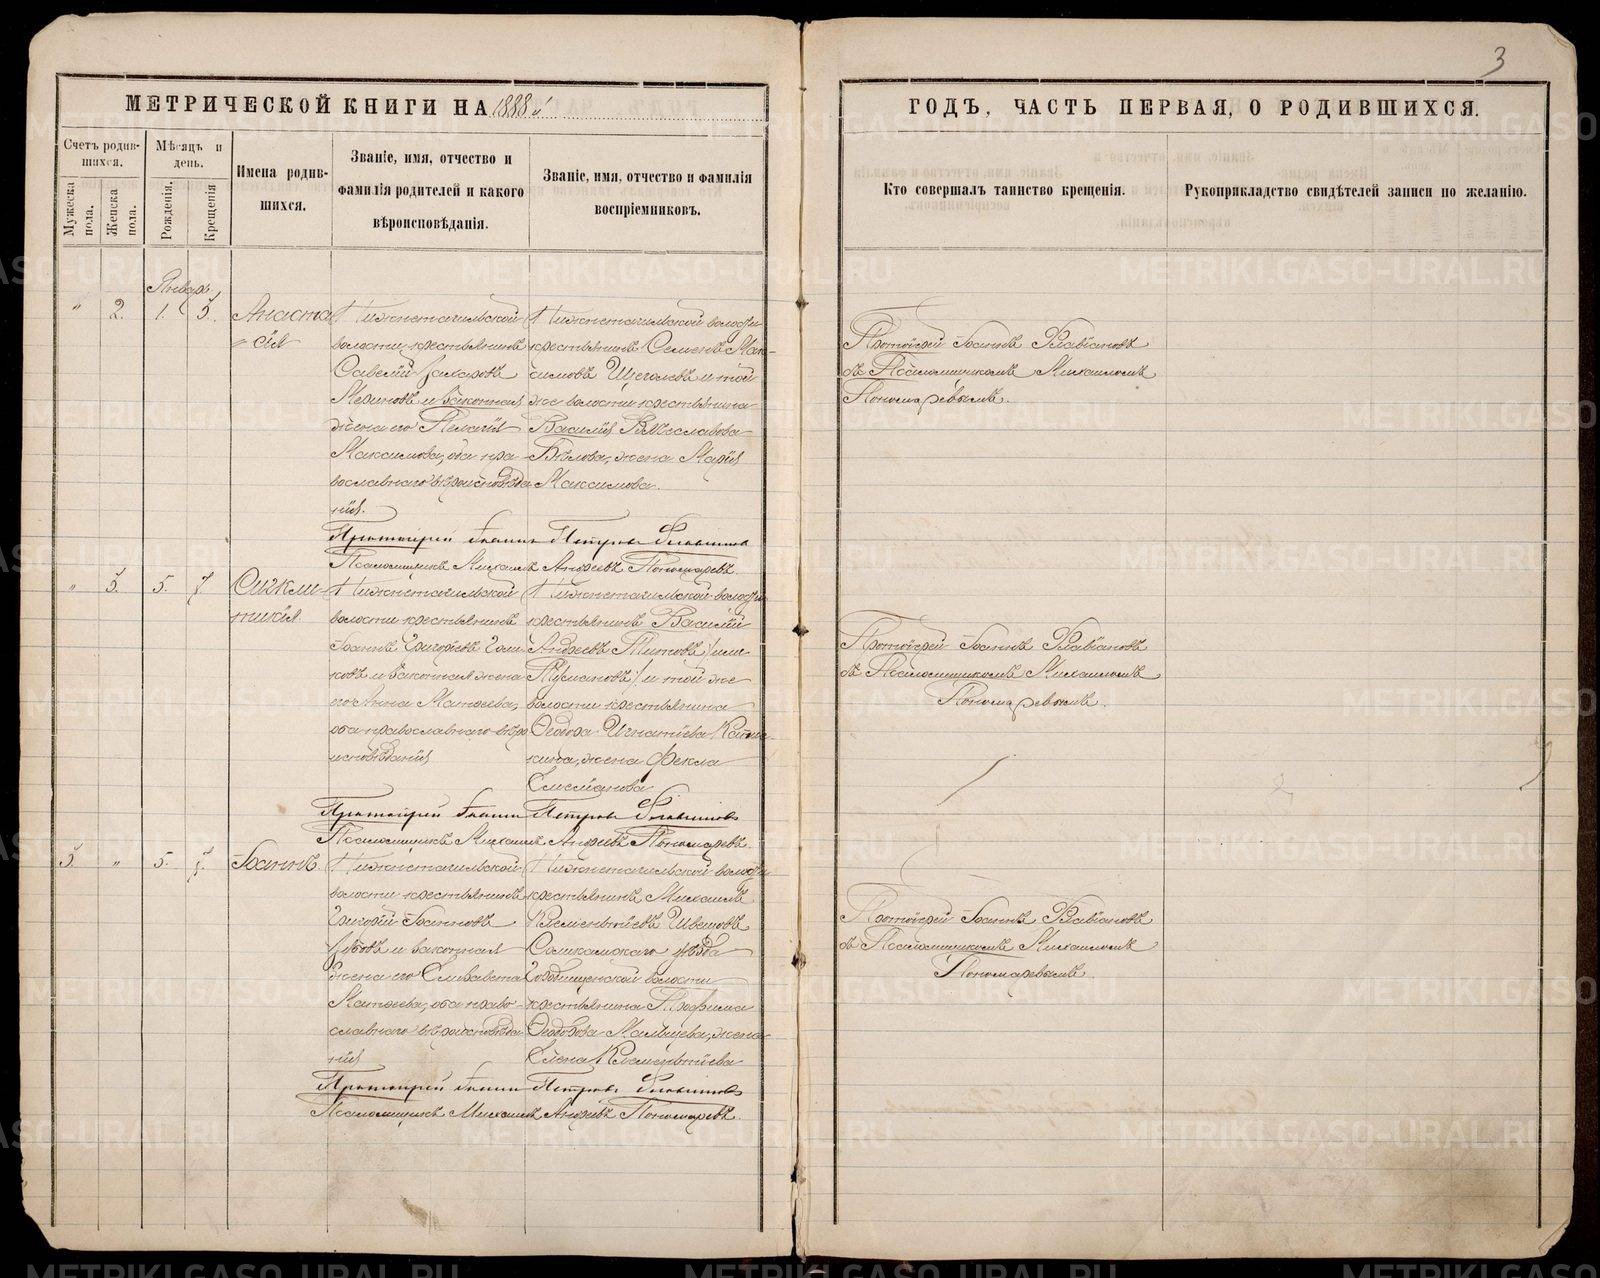 3
МЕТРИЧЕСКОЙ КНИГИ НА 1888й
ГОДЪ, ЧАСТЬ ПЕРВАЯ, О РОДИВШИХСЯ.
Счетъ родив-
шихся.
Мужеска
пола.
Женска
пола.
Мѣсяцъ и
день.
Рожденія.
Крещенія
Имена родив-
шихся.
Званіе, имя, отчество и
фамилія родителей и какого
вѣроисповѣданія.
Званіе, имя, отчество и фамилія
воспріемниковъ.
Кто совершалъ таинство крещенія.
Рукоприкладство свидѣтелей записи по желанію.
Январь.
" 2. 1. 5. Анаста
= сія
Нижнетагильской
волости крестьянинъ
Савелій Захаровъ
и законная
жена его Пелагія
Максимова, оба пра-
вославнаго вѣроисповѣда
нія.
Нижнетагильской волости
крестьянинъ Семенъ Мак-
симовъ Щеголевъ и той
же волости крестьянина
Василія Вячеславова
Бѣлова, жена Марія
Максимова.
Протоіерей Іоаннъ Флавіановъ
съ Псаломщикомъ Михаиломъ
Пономаревымъ.
Протоіерей Іоаннъ Петровъ Флавіановъ
Псаломщикъ Михаилъ Андреевъ Пономаревъ.
" 3. 5. 7. Сигкли-
тикія
Нижнетагильской
волости крестьянинъ
Іоаннъ Григорьевъ Голи-
ковъ и законная жена
его Анна Матѳеева,
оба православнаго вѣро
исповѣданія
Нижнетагильской волости
крестьянинъ Василій
Андреевъ Титовъ /или
и той же
волости крестьянина
Ѳеодора Игнатіева
жена Ѳекла
Протоіерей Іоаннъ Флавіановъ
съ Псаломщикомъ Михаиломъ
Пономаревымъ.
Протоіерей Іоаннъ Петровъ Флавіановъ
Псаломщикъ Михаилъ Андреевъ Пономаревъ.
3. " 5. 7. Іоаннъ.
Нижнетагильской
волости крестьянинъ
Григорій Іоанновъ
и законная
жена его Елисавета
Матѳеева, оба право-
славнаго вѣроисповѣда
нія
Нижнетагильской волости
крестьянинъ Михаилъ
Клементьевъ Швецовъ
Соликамскаго уѣзда
волости
крестьянина Трофима
Ѳеодорова Мальцева, жена
Елена Клементьева
Протоіерей Іоаннъ Флавіановъ
съ Псаломщикомъ Михаиломъ
Пономаревымъ.
Протоіерей Іоаннъ Петровъ Флавіановъ
Псаломщикъ Михаилъ Андреевъ Пономаревъ.
METRIKI.GASO-URAL.RU